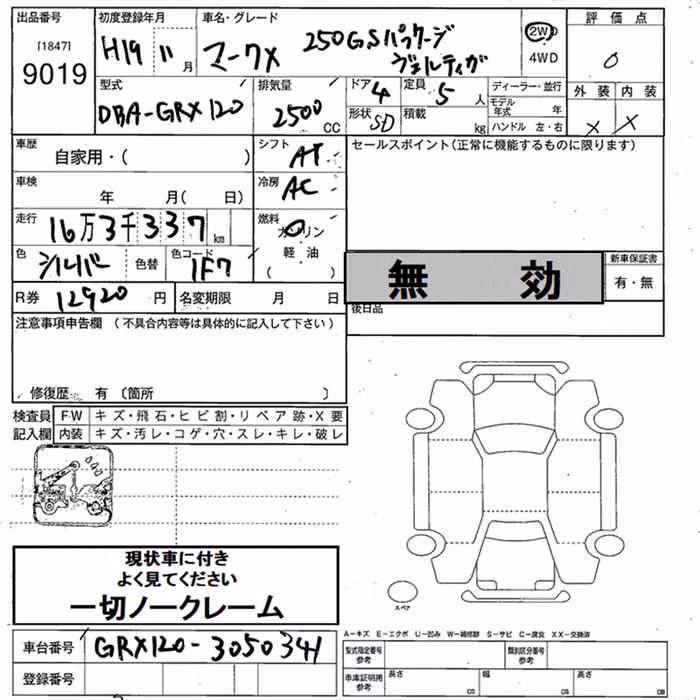 出品番号
[1847]
9019
初度登録年月
H19 11月
車名・グレード
マークX 250GSパッケージ
ヴェルティガ
2WD
4WD
評価点
0
外装 内装
X X
型式
DBA-GRX120
排気量
2500
CC
ドア
4
定員
5 人
形状
SD
積載
kg
ディーラー・並行
モデル年式 年
ハンドル 左・右
車歴
自家用・( )
シフト
AT
セールスポイント(正常に機能するものに限ります)
車検
年 月( 日)
冷房
AC
走行
16万3千337km
燃料
ガソリン
軽油
( )
色
シルバー
色替
色コード
1F7
無効
新車保証書
有・無
R券
12920円
名変期限 月 日
後日品
注意事項申告欄 (不具合内容等は具体的に記入して下さい)
修復歴 有 〔箇所 〕
検査員記入欄
FW キズ・飛石・ヒビ割・リペア跡・X要
内装 キズ・汚レ・コゲ・穴・スレ・キレ・破レ
現状車に付き
よく見てください
一切ノークレーム
スペア
車台番号
GRX120-3050341
登録番号
A-キズ E-エクボ U-凹み W-補修跡 S-サビ C-腐食 XX-交換済
型式指定番号
参考
類別区分番号
参考
車庫証明用
参考
長さ
cm
幅
cm
高さ
cm